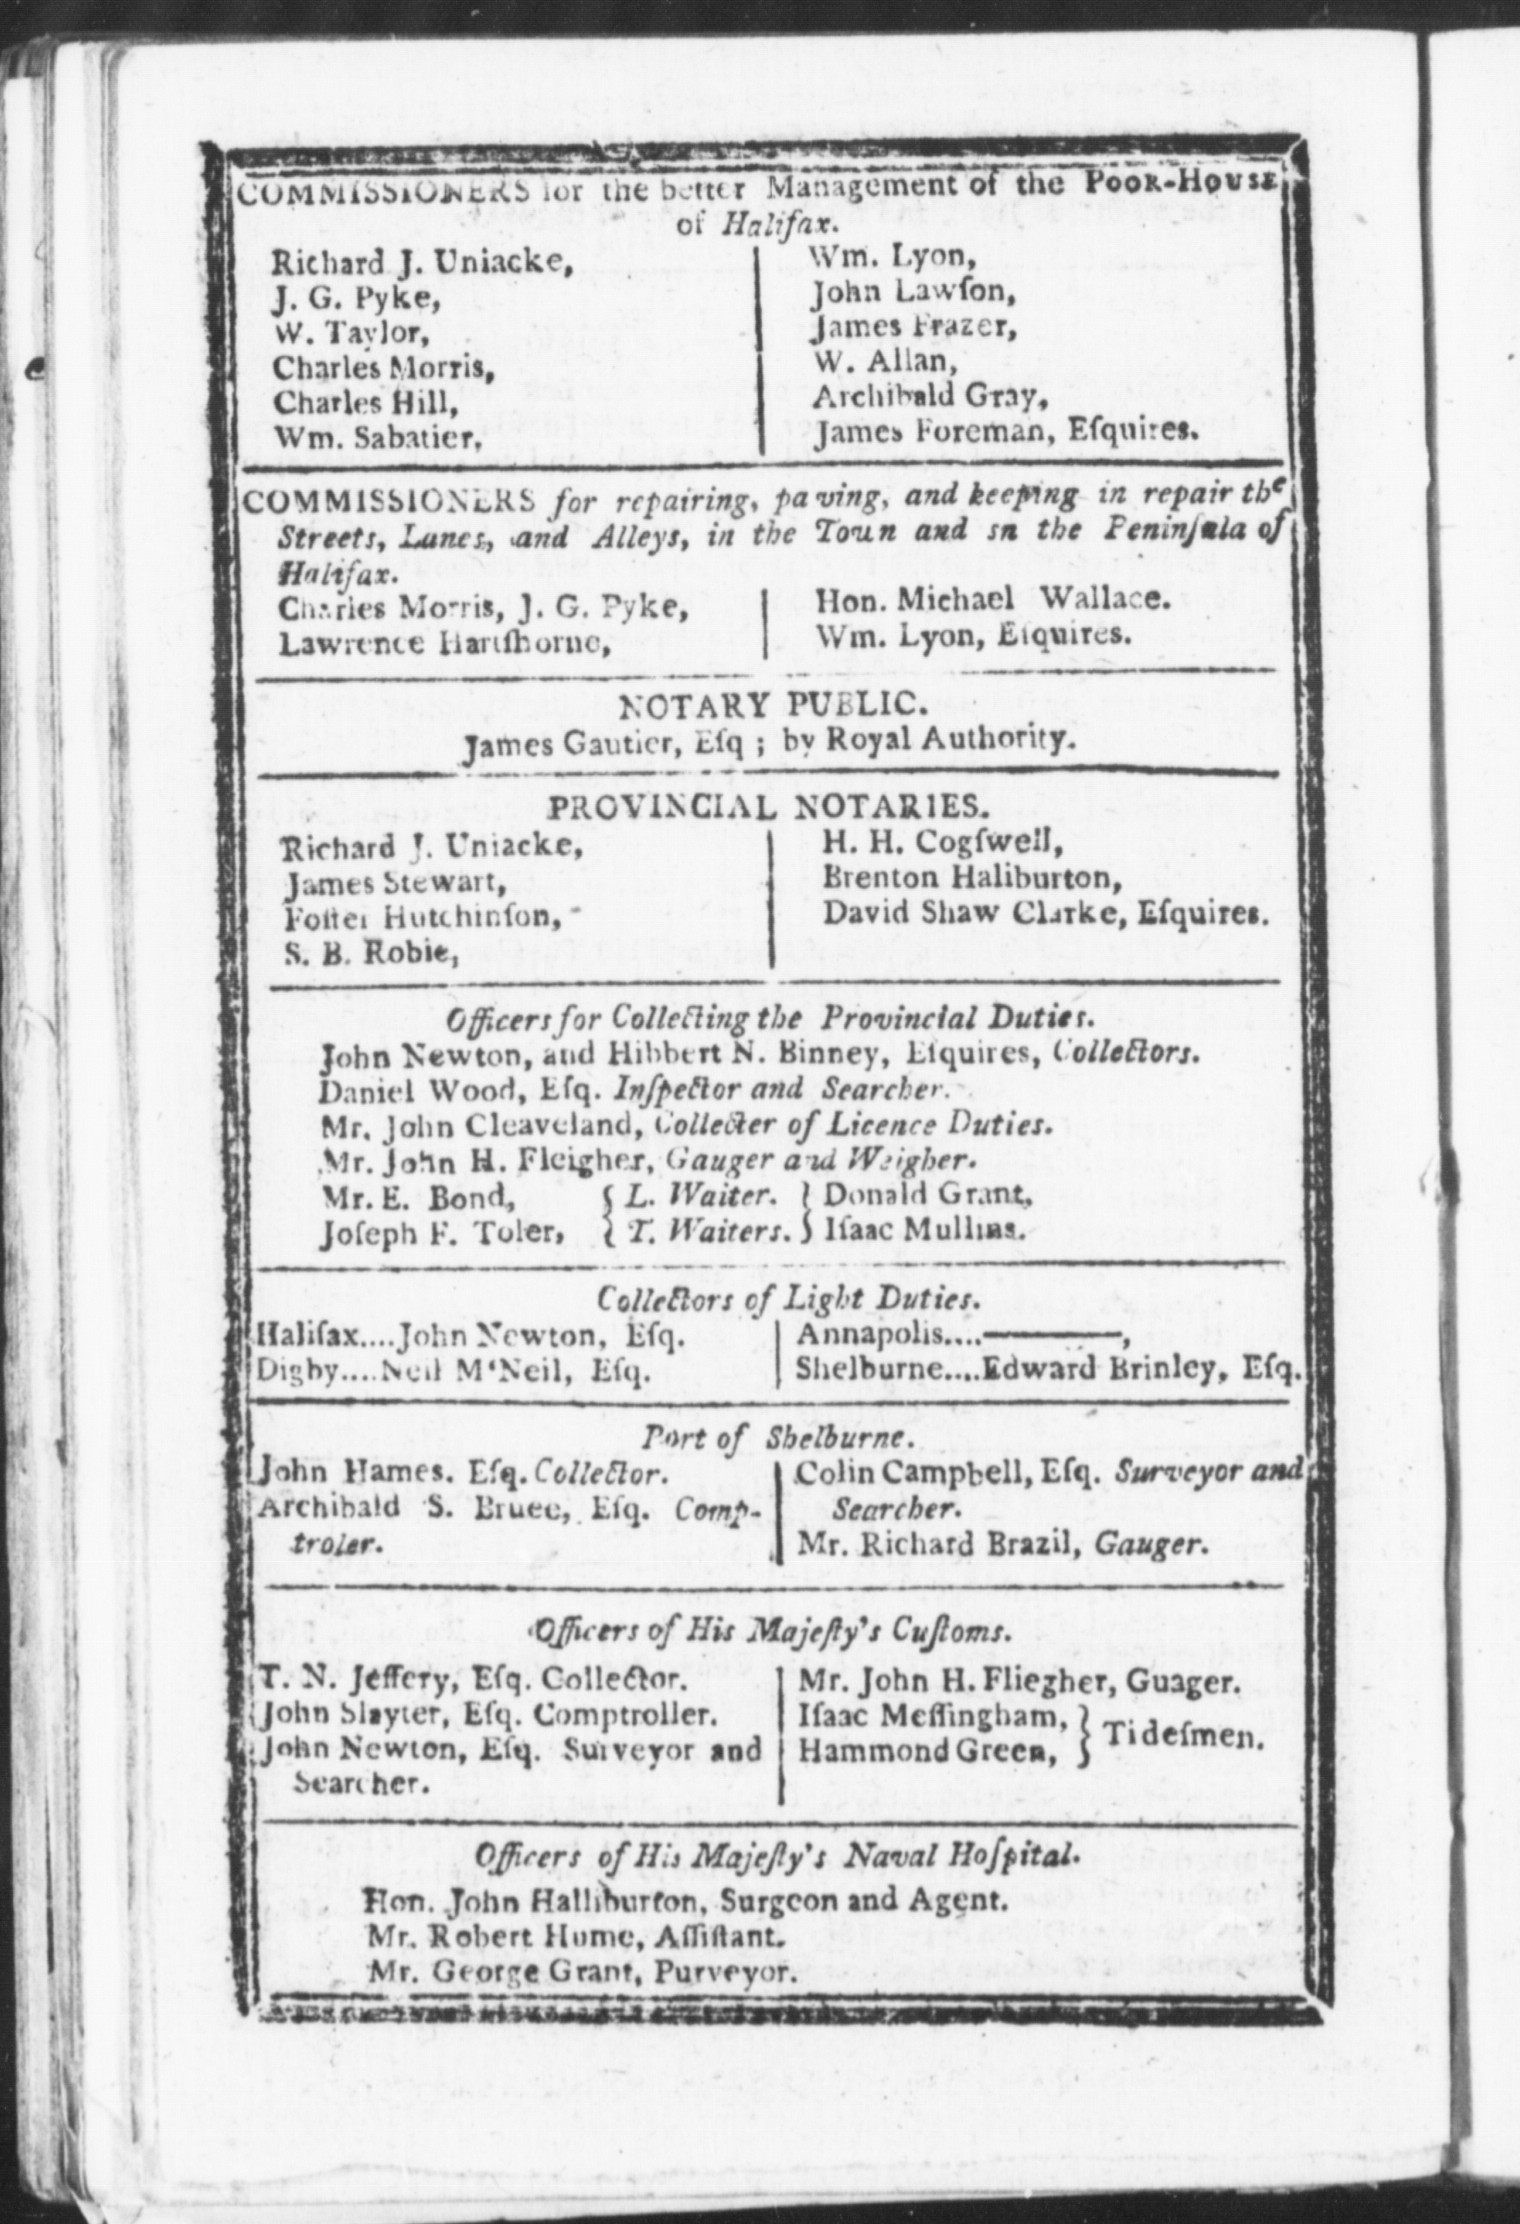 COMMISSIONERS for the better Management of the POOR-HOUSE
of Halifax.
Richard J. Uniacke,
J. G. Pyke,
W. Taylor,
Charles Morris,
Charles Hill,
Wm. Sabatier,
Wm. Lyon,
John Lawſon,
James Frazer,
W. Allan,
Archibald Gray,
James Foreman, Eſquires.
COMMISSIONERS for repairing, paving, and keeping in repair the
Streets, Lanes, and Alleys, in the Toun and sn the Peninſula of
Halifax.
Charles Morris, J. G. Pyke,
Lawrence Hartſhorne,
Hon. Michael Wallace.
Wm. Lyon, Eſquires.
NOTARY PUBLIC.
James Gautier, Eſq ; by Royal Authority.
PROVINCIAL NOTARIES.
Richard J. Uniacke,
James Stewart,
Foſter Hutchinſon,
S. B. Robie,
H. H. Cogſwell,
Brenton Haliburton,
David Shaw Clarke, Eſquires.
Officers for Collecting the Provincial Duties.
John Newton, and Hibbert N. Binney, Eſquires, Collectors.
Daniel Wood, Eſq. Inſpector and Searcher.
Mr. John Cleaveland, Collecter of Licence Duties.
Mr. John H. Fleigher, Gauger and Weigher.
Mr. E. Bond, { L. Waiter. } Donald Grant,
Joſeph F. Toler, { T. Waiters. } Iſaac Mullins.
Collectors of Light Duties.
Halifax....John Newton, Eſq.
Digby....Neil M‘Neil, Eſq.
Annapolis....————,
Shelburne....Edward Brinley, Eſq.
Port of Shelburne.
John Hames. Eſq. Collector.
Archibald S. Bruee, Eſq. Comp-
troler.
Colin Campbell, Eſq. Surveyor and
Searcher.
Mr. Richard Brazil, Gauger.
Officers of His Majeſty's Cuſtoms.
T. N. Jeffery, Eſq. Collector.
John Slayter, Eſq. Comptroller.
John Newton, Eſq. Surveyor and
Searcher.
Mr. John H. Fliegher, Guager.
Iſaac Meſſingham,
Hammond Green, } Tideſmen.
Officers of His Majeſty's Naval Hoſpital.
Hon. John Halliburton, Surgeon and Agent.
Mr. Robert Hume, Aſſiſtant.
Mr. George Grant, Purveyor.